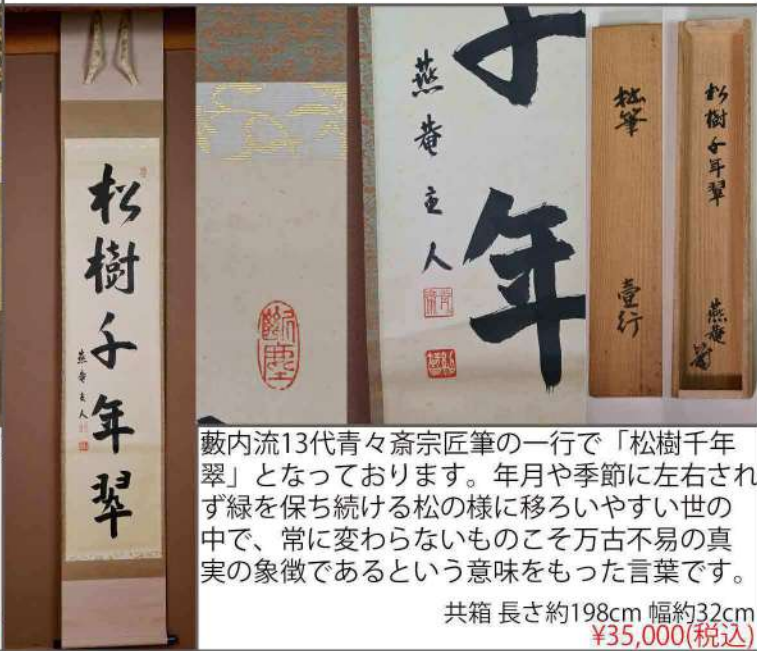 松樹千年翠
燕庵主人
断塵
千年
燕庵主人
拙筆
壹行
松樹千年翠
燕庵
藪内流13代青々斎宗匠筆の一行で「松樹千年
翠」となっております。年月や季節に左右され
ず緑を保ち続ける松の様に移ろいやすい世の
中で、常に変わらないものこそ万古不易の真
実の象徴であるという意味をもった言葉です。
共箱 長さ約198cm 幅約32cm
¥35,000(税込)